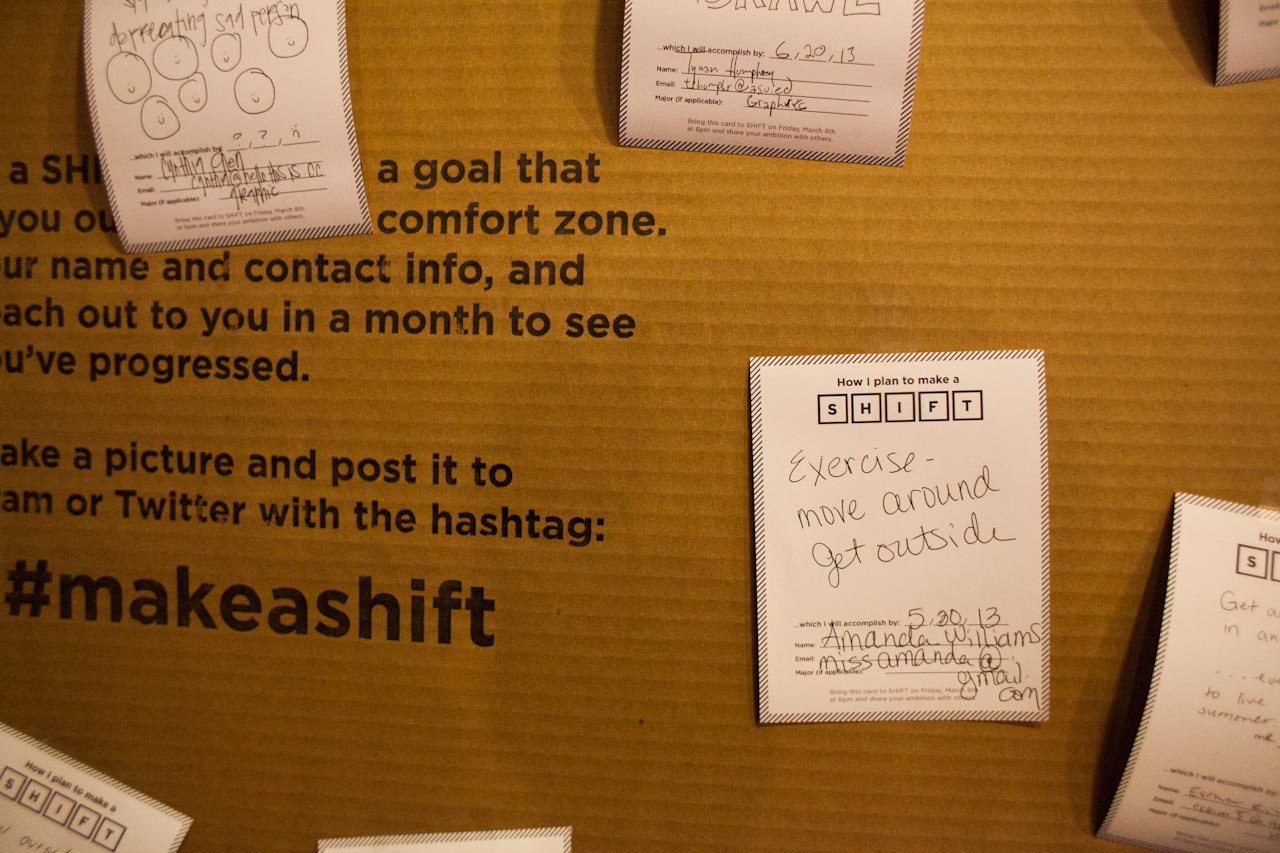 deprecating sad person
...which I will accomplish by: ?, ?, ñ
Name: Cynthia
Email:
Major (if applicable): graphic
Bring this card to SHIFT on Friday, March 8th
at 6pm and share your ambition with others.
...which I will accomplish by: 6, 20, 13
Name: Humphrey
Email:
Major (if applicable): Graphic
Bring this card to SHIFT on Friday, March 8th
at 6pm and share your ambition with others.
a SHI a goal that
you ou comfort zone.
ur name and contact info, and
each out to you in a month to see
ou've progressed.
ake a picture and post it to
ram or Twitter with the hashtag:
#makeashift
How I plan to make a
SHIFT
Exercise-
move around
get outside
...which I will accomplish by: 5, 30, 13
Name: Amanda Williams
Email: missamanda@
Major (if applicable): gmail.
com
Bring this card to SHIFT on Friday, March 8th
at 6pm and share your ambition with others.
How
S
Get a
in an
....ev
to live
summer.
me
...which I will accomplish by:
Name: Esther
Email:
Major (if applicable):
Bring this
How I plan to make a
SHIFT